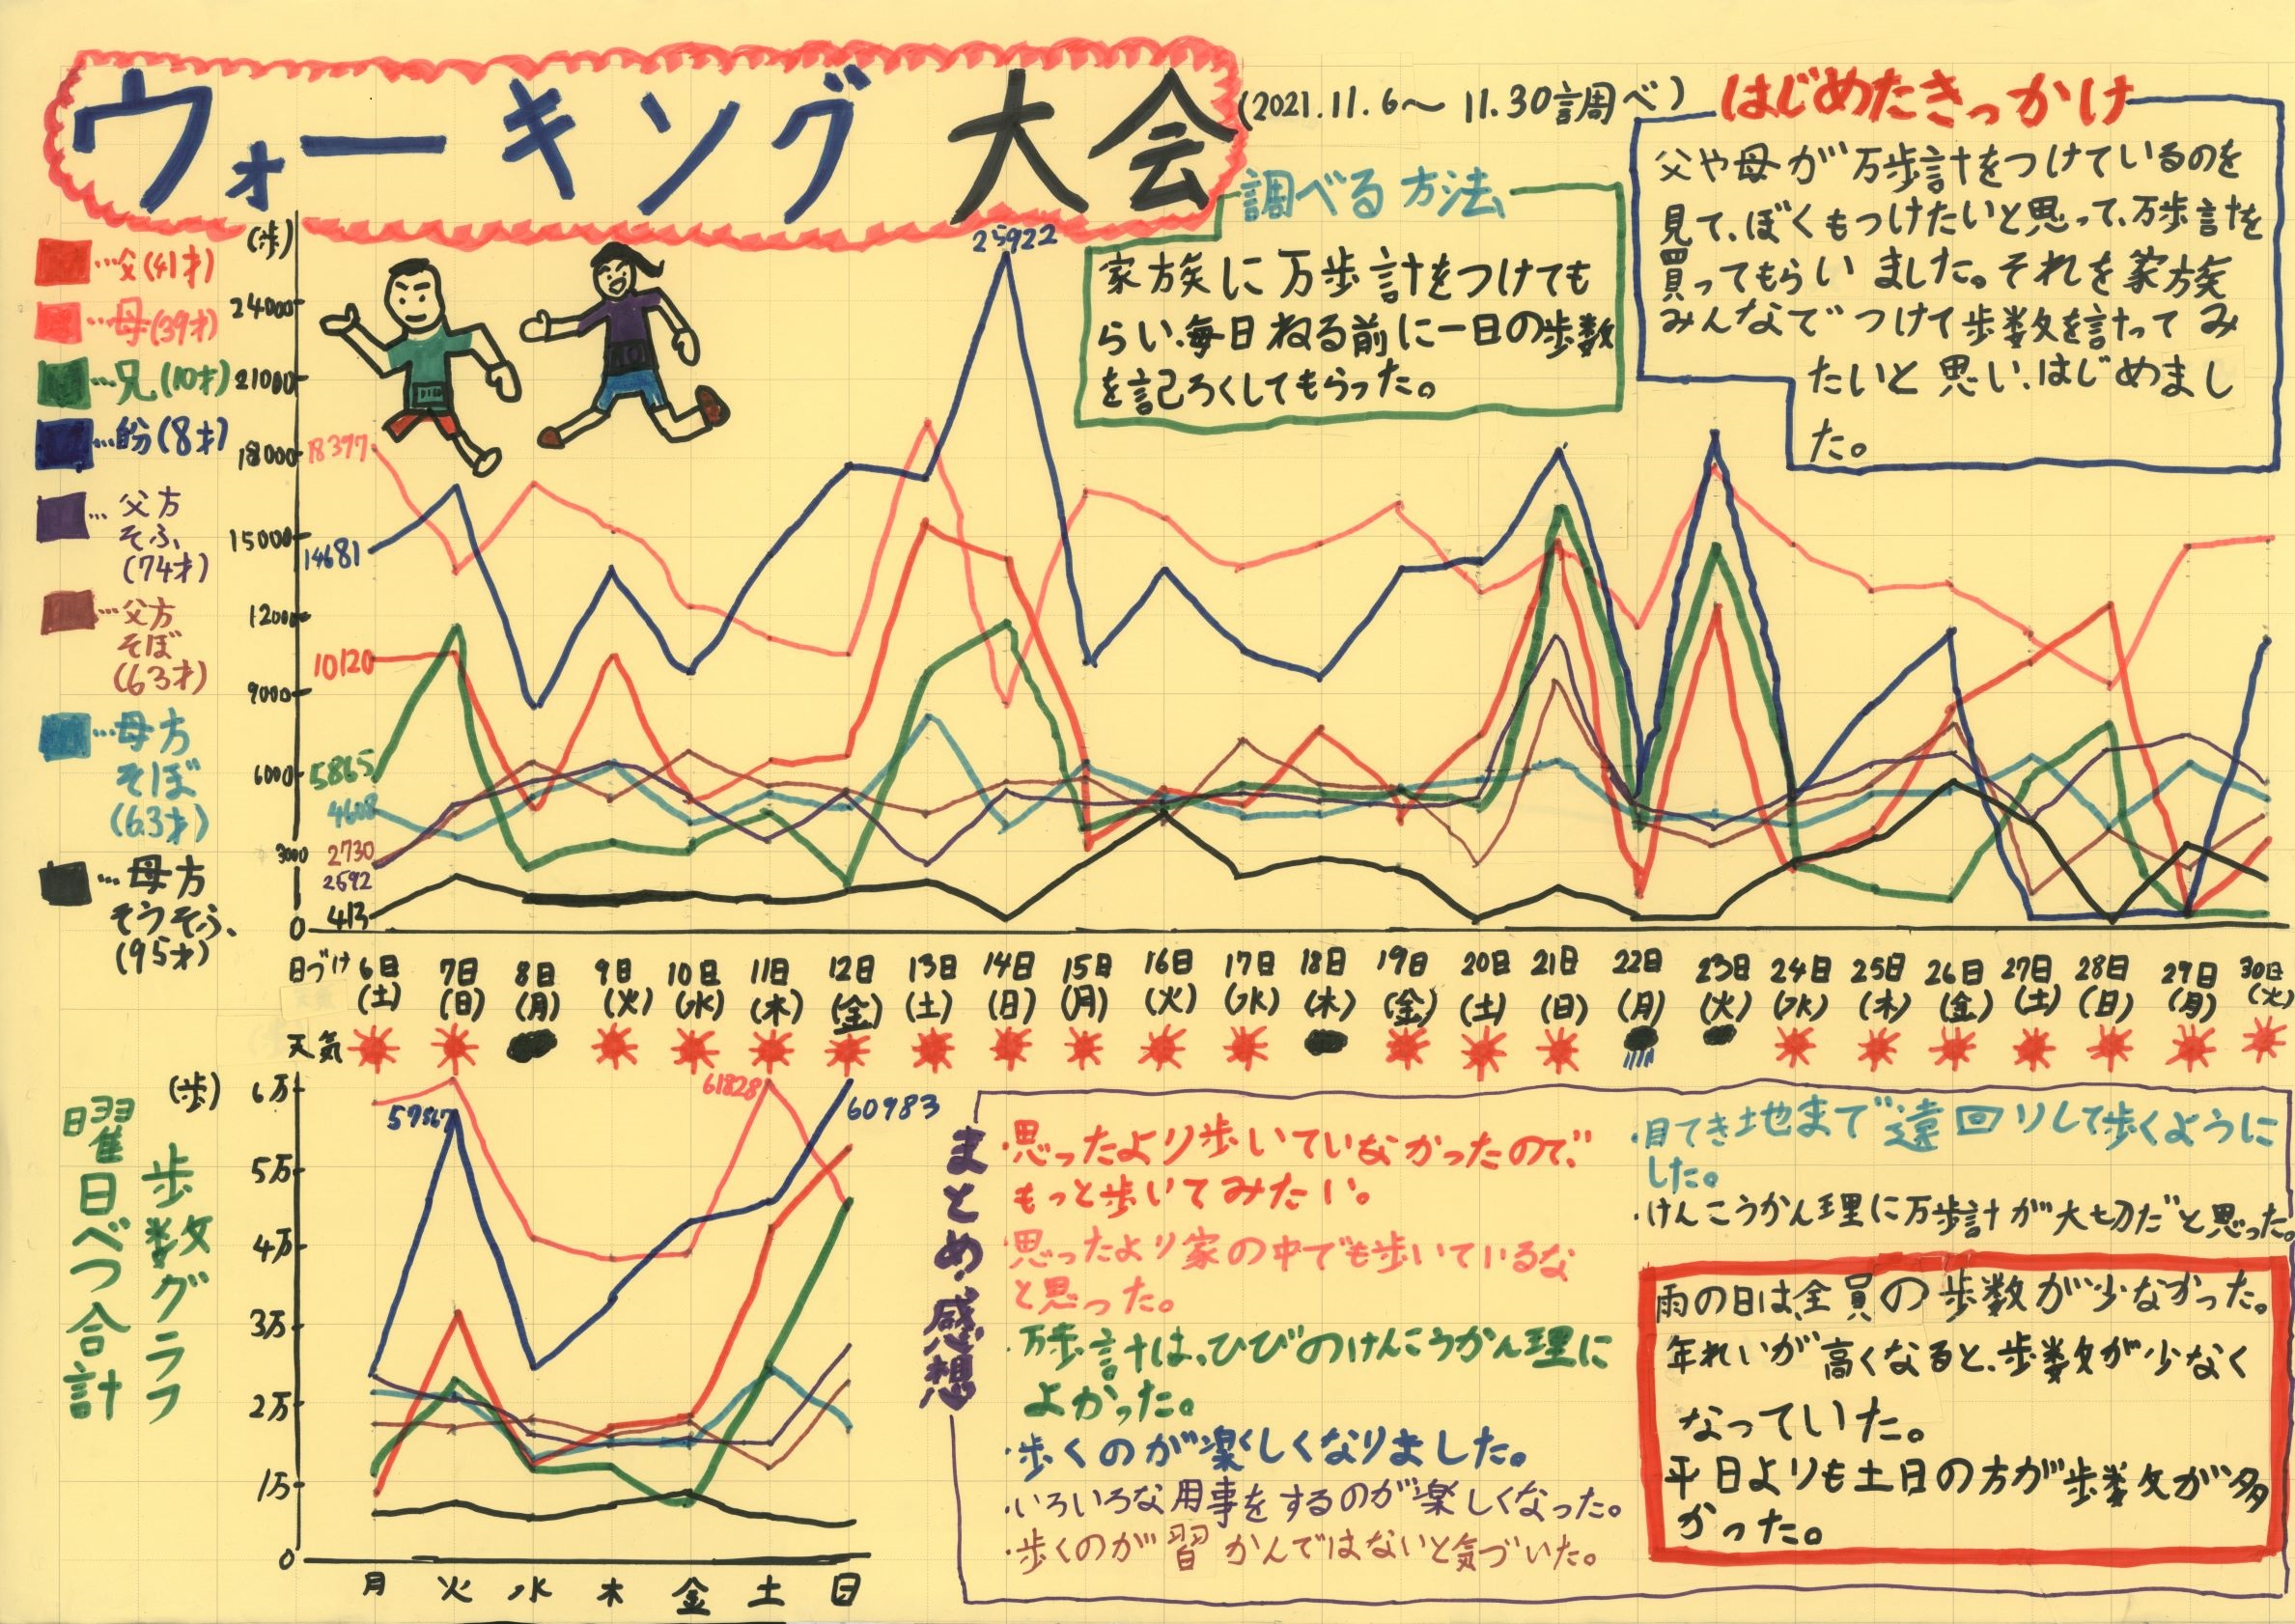 ウォーキング大会
(2021.11.6〜11.30調べ)
はじめたきっかけ
父や母が万歩計をつけているのを
見て、ぼくもつけたいと思って、万歩計を
買ってもらいました。それを家族
みんなでつけて歩数を計ってみ
たいと思い、はじめまし
た。
調べる方法
家族に万歩計をつけても
らい、毎日ねる前に一日の歩数
を記ろくしてもらった。
…父(41才)
…母(39才)
…兄(10才)
…自分(8才)
…父方
そふ
(74才)
…父方
そぼ
(63才)
…母方
そぼ
(63才)
…母方
そうそふ
(95才)
(歩)
24000
21000
18000
15000
12000
9000
6000
3000
0
25922
18397
14681
10120
5865
4608
2730
2592
413
日づけ 6日 7日 8日 9日 10日 11日 12日 13日 14日 15日 16日 17日 18日 19日 20日 21日 22日 23日 24日 25日 26日 27日 28日 29日 30日
(土) (日) (月) (火) (水) (木) (金) (土) (日) (月) (火) (水) (木) (金) (土) (日) (月) (火) (水) (木) (金) (土) (日) (月) (火)
天気
曜日べつ合計
歩数グラフ
(歩)
6万
5万
4万
3万
2万
1万
0
59867
61828
60983
月 火 水 木 金 土 日
まとめ・感想
・思ったより歩いていなかったので、
もっと歩いてみたい。
・思ったより家の中でも歩いているな
と思った。
・万歩計は、ひびのけんこうかん理に
よかった。
・歩くのが楽しくなりました。
・いろいろな用事をするのが楽しくなった。
・歩くのが習かんではないと気づいた。
・目てき地まで遠回りして歩くように
した。
・けんこうかん理に万歩計が大切だと思った。
雨の日は全員の歩数が少なかった。
年れいが高くなると、歩数が少なく
なっていた。
平日よりも土日の方が歩数が多
かった。